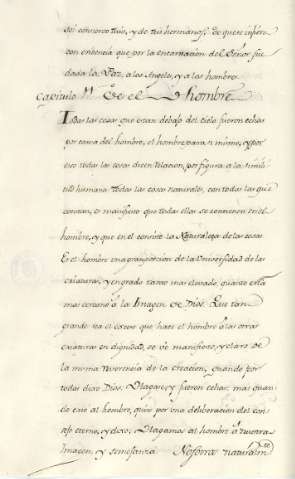 asi conmigo Tuio, y de tus hermanos, de quien espero
con entencia que por la encarnacion del Señor fue
dada la Paz, a los Angeles, y a los hombre
Capitulo De el hombre
Todas las cosas que estan debajo del cielo fueron echas
por causa del hombre, el hombre para si mismo, y por
eso todas las cosas dicen relacion, por figura a la simili
tud humana. Todas las cosas naturales, con todas las que
constan, es manifiesto que todas ellas se contienen en el
hombre, y que en el consiste la Naturaleza de las cosas
Es el hombre una gran porcion de la Universidad de las
criaturas, y en grado tanto mas elevado, quanto está
mas cercano â la Imagen de Dios. Que tan
grande sea el exceso que hace el hombre â las otras
criaturas en dignidad, se vê manifiesto, y claro de
la misma reverencia de la creacion, quando por
todas dixo Dios. Hagase, y fueron echas, mas quan
do crió al hombre, quiso por una deliberacion del con
sejo eterno, y dixo; Hagamos al hombre â nuestra
Imagen, y semejanza Nosotros naturalm.te